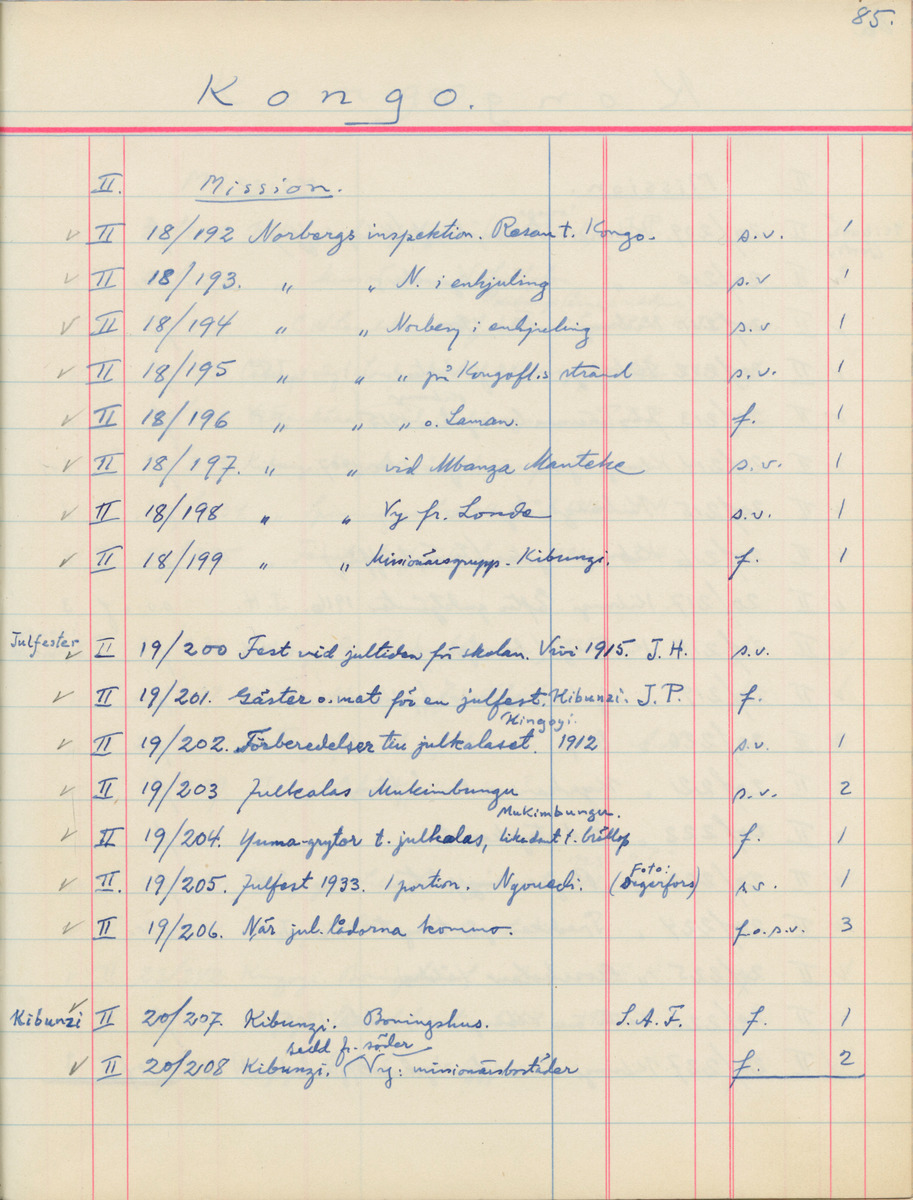 85.
Kongo.
II. Mission.
✓ II 18/192 Norbergs inspektion. Resan t. Kongo. s.v. 1
✓ II 18/193. " " N. i enhjuling s.v 1
✓ II 18/194 " " Norberg i enhjuling s.v 1
✓ II 18/195 " " " på Kongofl.s strand s.v. 1
✓ II 18/196 " " " o. Laman. f. 1
✓ II 18/197. " " vid Mbanza Manteke s.v. 1
✓ II 18/198 " " Vy fr. Londe s.v. 1
✓ II 18/199 " " Missionärsgrupp. Kibunzi. f. 1
Julfester ✓ II 19/200 Fest vid jultiden för skolan. Vivi 1915. J.H. s.v.
✓ II 19/201. Gäster o. mat för en julfest. Kibunzi. J.P. f.
Kingoyi.
✓ II 19/202. Förberedelser till julkalaset. 1912 s.v. 1
✓ II 19/203 Julkalas Mukimbungu s.v. 2
Mukimbungu.
✓ II 19/204. Yuma-grytor t. julkalas, likadant f. bröllop f. 1
Foto:
✓ II. 19/205. Julfest 1933. 1 portion. Ngouedi. (Degerfors) s.v. 1
✓ II 19/206. När jul.lådorna kommo. f.o.s.v. 3
Kibunzi ✓ II 20/207. Kibunzi. Boningshus. S.A.F. f. 1
sedd fr. söder
✓ II 20/208 Kibunzi. Vy: missionärsbostäder f. 2